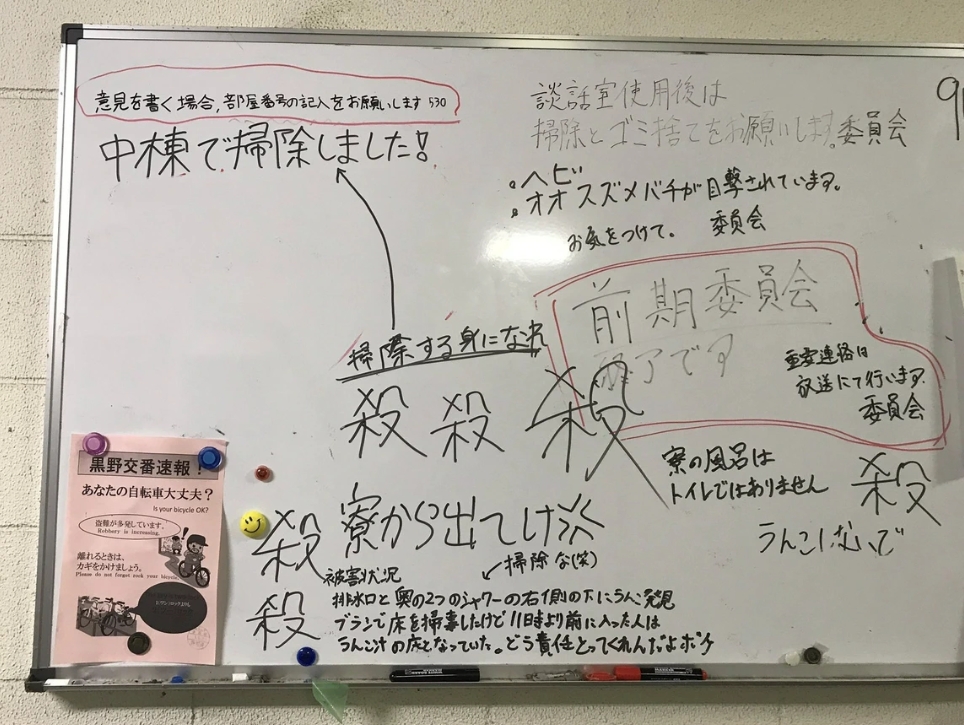 意見を書く場合,部屋番号の記入をお願いします 530
中棟で掃除しました!
談話室使用後は
掃除とゴミ捨てをお願いします。委員会
。ヘビ
。オオスズメバチが目撃されています。
お気をつけて。 委員会
前期委員会
終了です
重要連絡は
放送にて行います。
委員会
掃除する身になれ
殺 殺 殺
寮の風呂は
トイレではありません
殺
うんこしないで
殺 寮から出てけ
掃除な(笑)
被害状況
殺
排水口と奥の2つのシャワーの右側の下にうんこ発見
ブラシで床を掃除したけど11時より前に入った人は
うんこ汁の床となっていた。どう責任とってくれんだよボケ
黒野交番速報!
あなたの自転車大丈夫?
Is your bicycle OK?
盗難が多発しています。
Robbery is increasing.
離れるときは、
カギをかけましょう。
Please do not forget rock your bicycle.